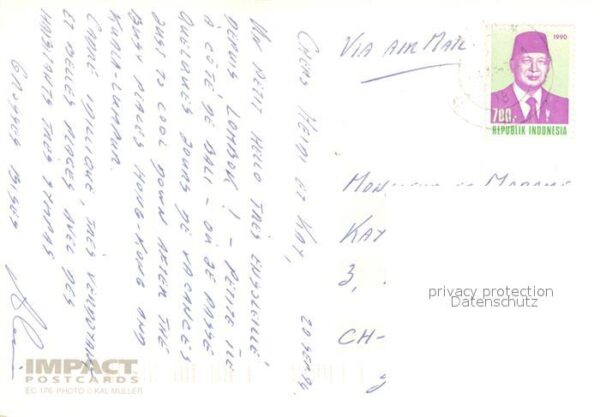 1990
700,-
REPUBLIK INDONESIA
VIA AIR MAIL
CHERS HEIDI ET KAY,
20 SEP. 94
UN PETIT HELLO TRÈS ENSOLEILLÉ
DEPUIS LOMBOK ! - PETITE ÎLE
À CÔTÉ DE BALI - OÙ JE PASSE
QUELQUES JOURS DE VACANCES
JUST TO COOL DOWN AFTER THE
BUSY PLACES HONG-KONG AND
KUALA-LUMPUR.
CADRE IDYLLIQUE, TRÈS VERDOYANT
ET BELLES PLAGES AVEC DES
HABITANTS TRÈS SYMPAS
GROSSES BISES
MONSIEUR ET MADAME
KAY
3,
CH-
privacy protection
Datenschutz
IMPACT
POSTCARDS
EC 176 PHOTO © KAL MULLER